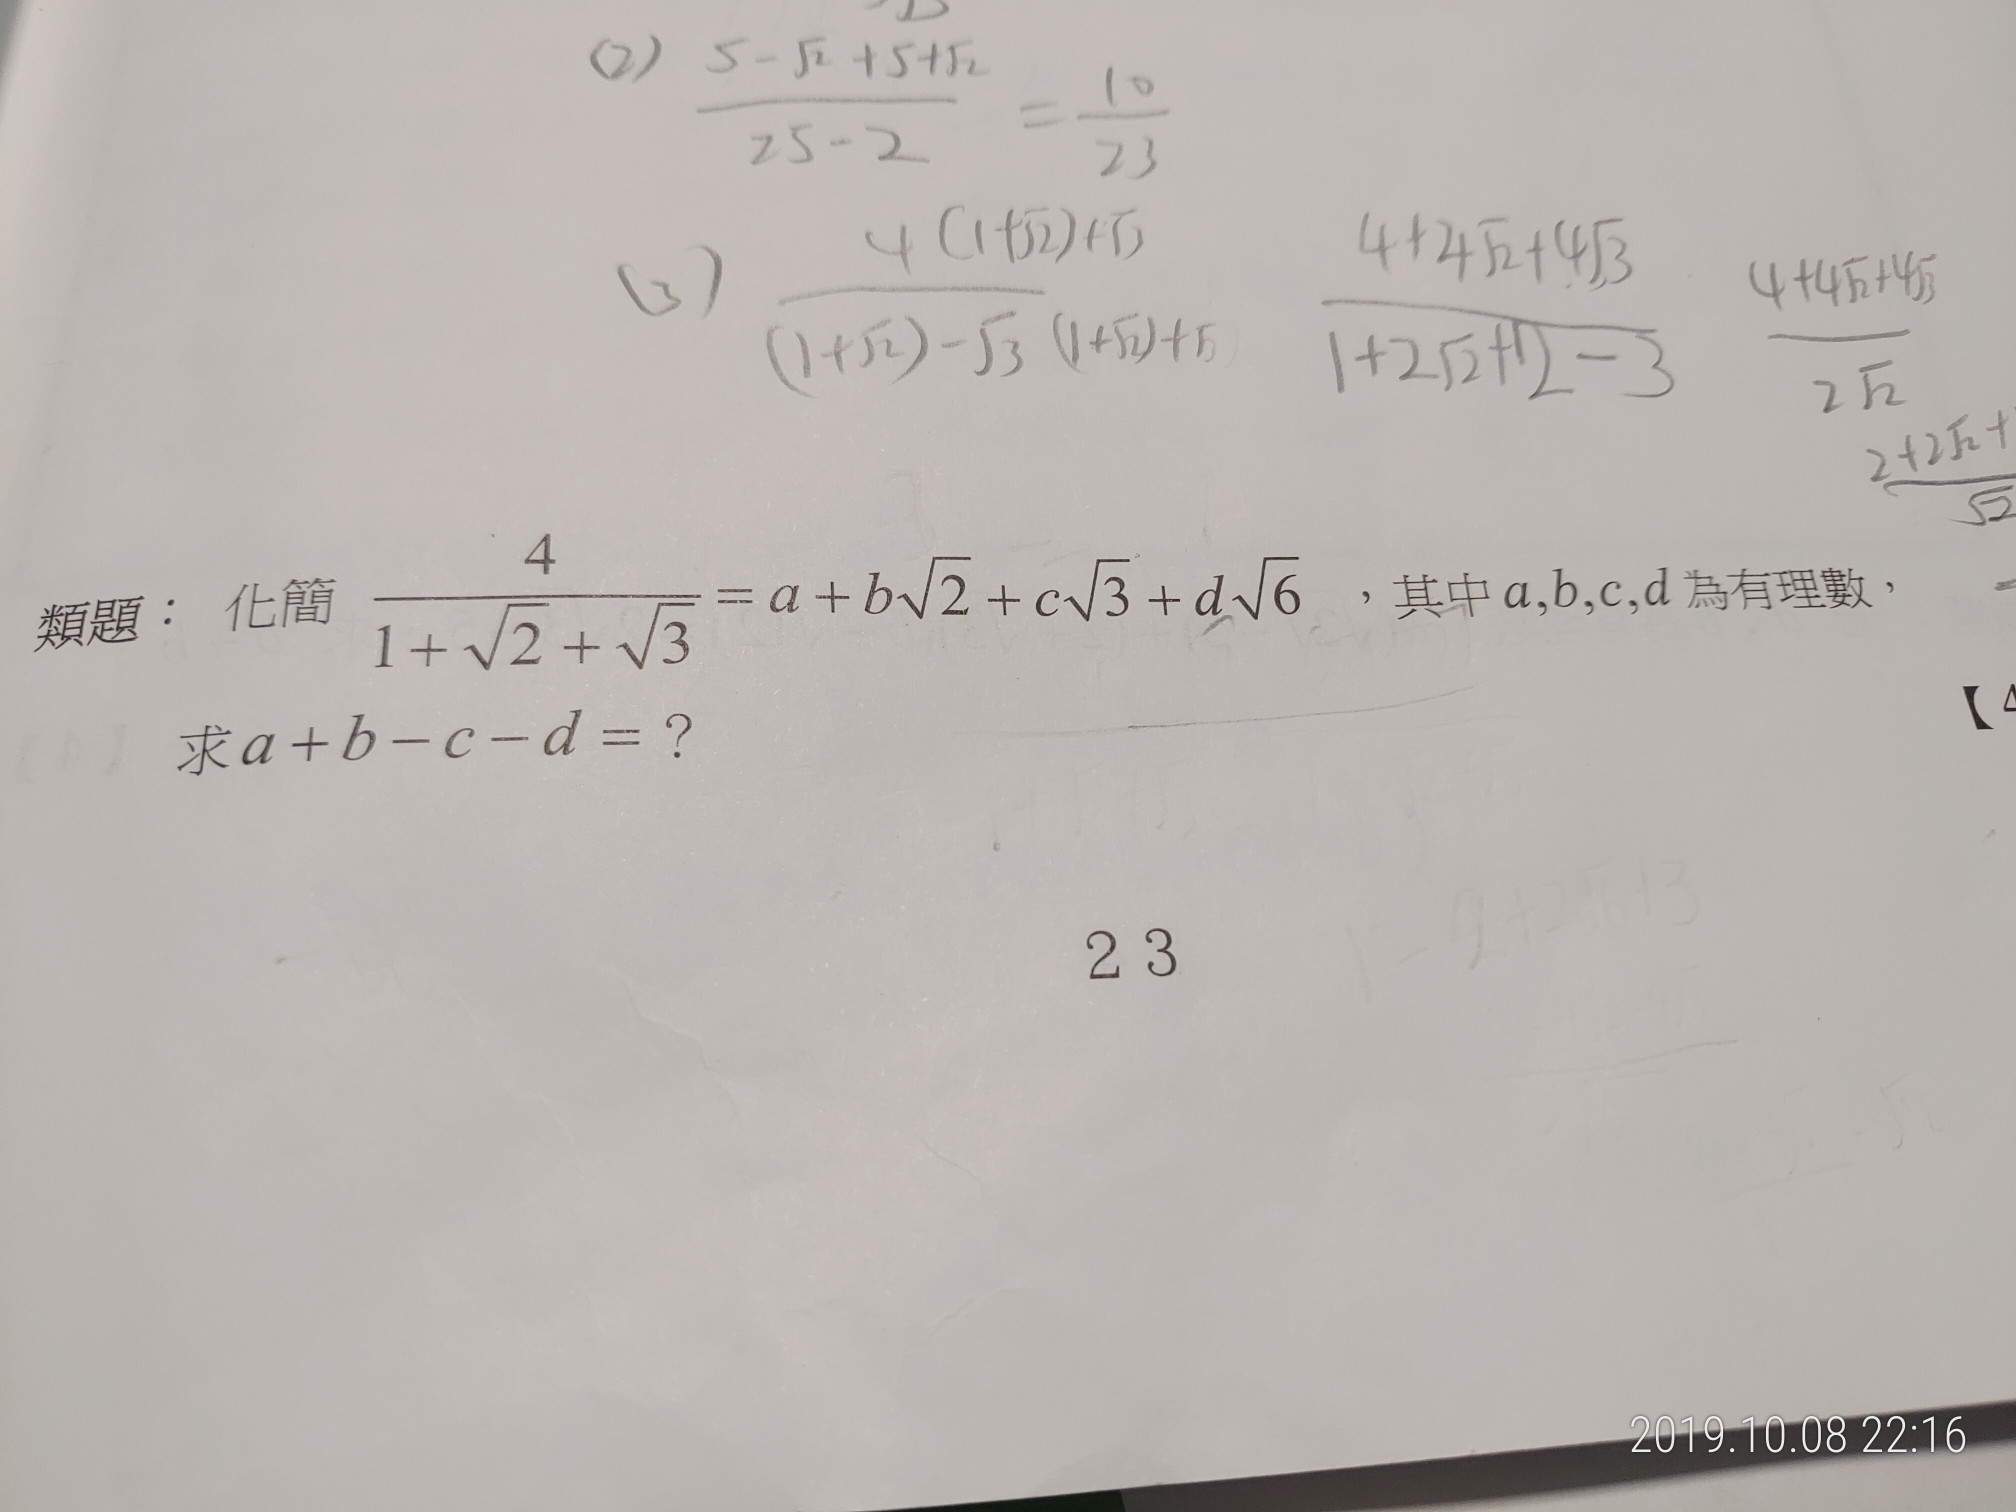 (2) (5-√2+5+√2)/(25-2) = 10/23
(3) (4(1+√2)+√3)/((1+√2)-√3 (1+√2)+√3) (4+4√2+4√3)/(1+2√2+2-3) (4+4√2+4√3)/(2√2)
(2+2√2+)/(√2)
類題： 化簡 4/(1+√2+√3) = a+b√2+c√3+d√6 ，其中 a,b,c,d 為有理數，
求 a+b-c-d = ?
【4
23
2019.10.08 22:16